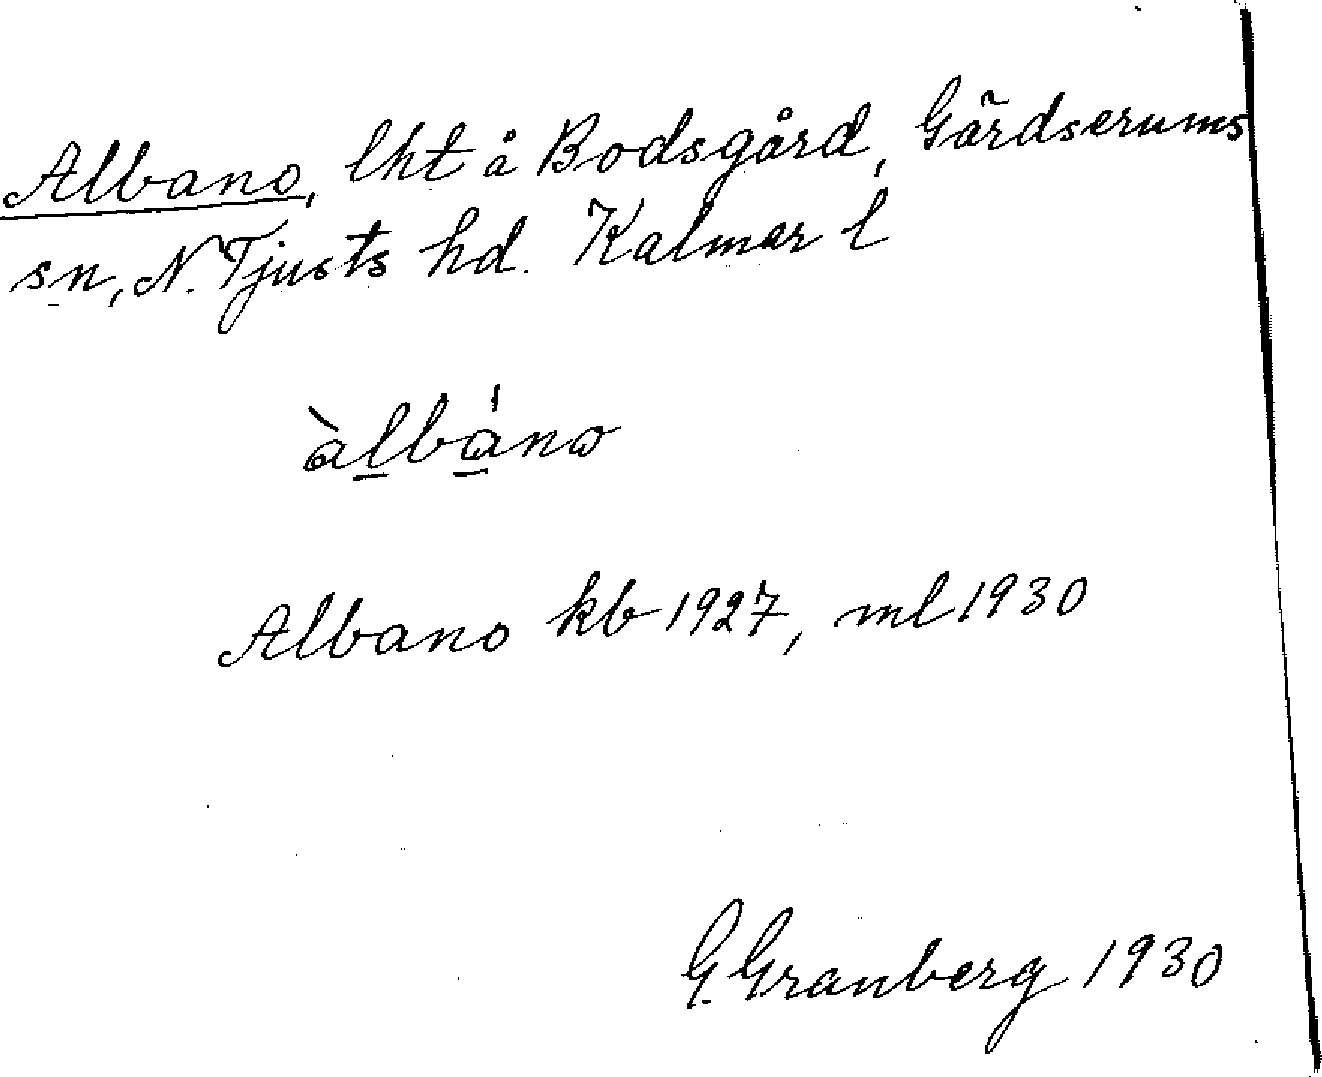 Albano, lht å Bodsgård, Gärdserums
sn, N. Tjusts hd. Kalmar l
àlbáno
Albano kb 1927, ml 1930
G. Granberg 1930